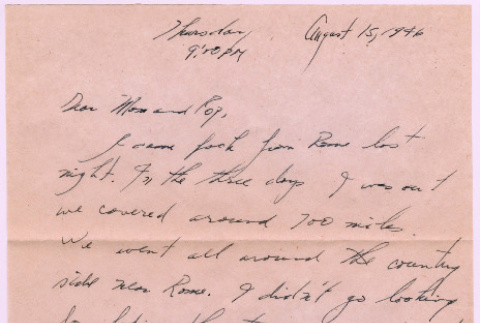 Thursday August 15, 1946
9:40 PM
Dear Mom and Pop,
I came back from Rome last
night. In the three days I was out
we covered around 700 miles.
We went all around the country
side near Rome. I didn't go looking